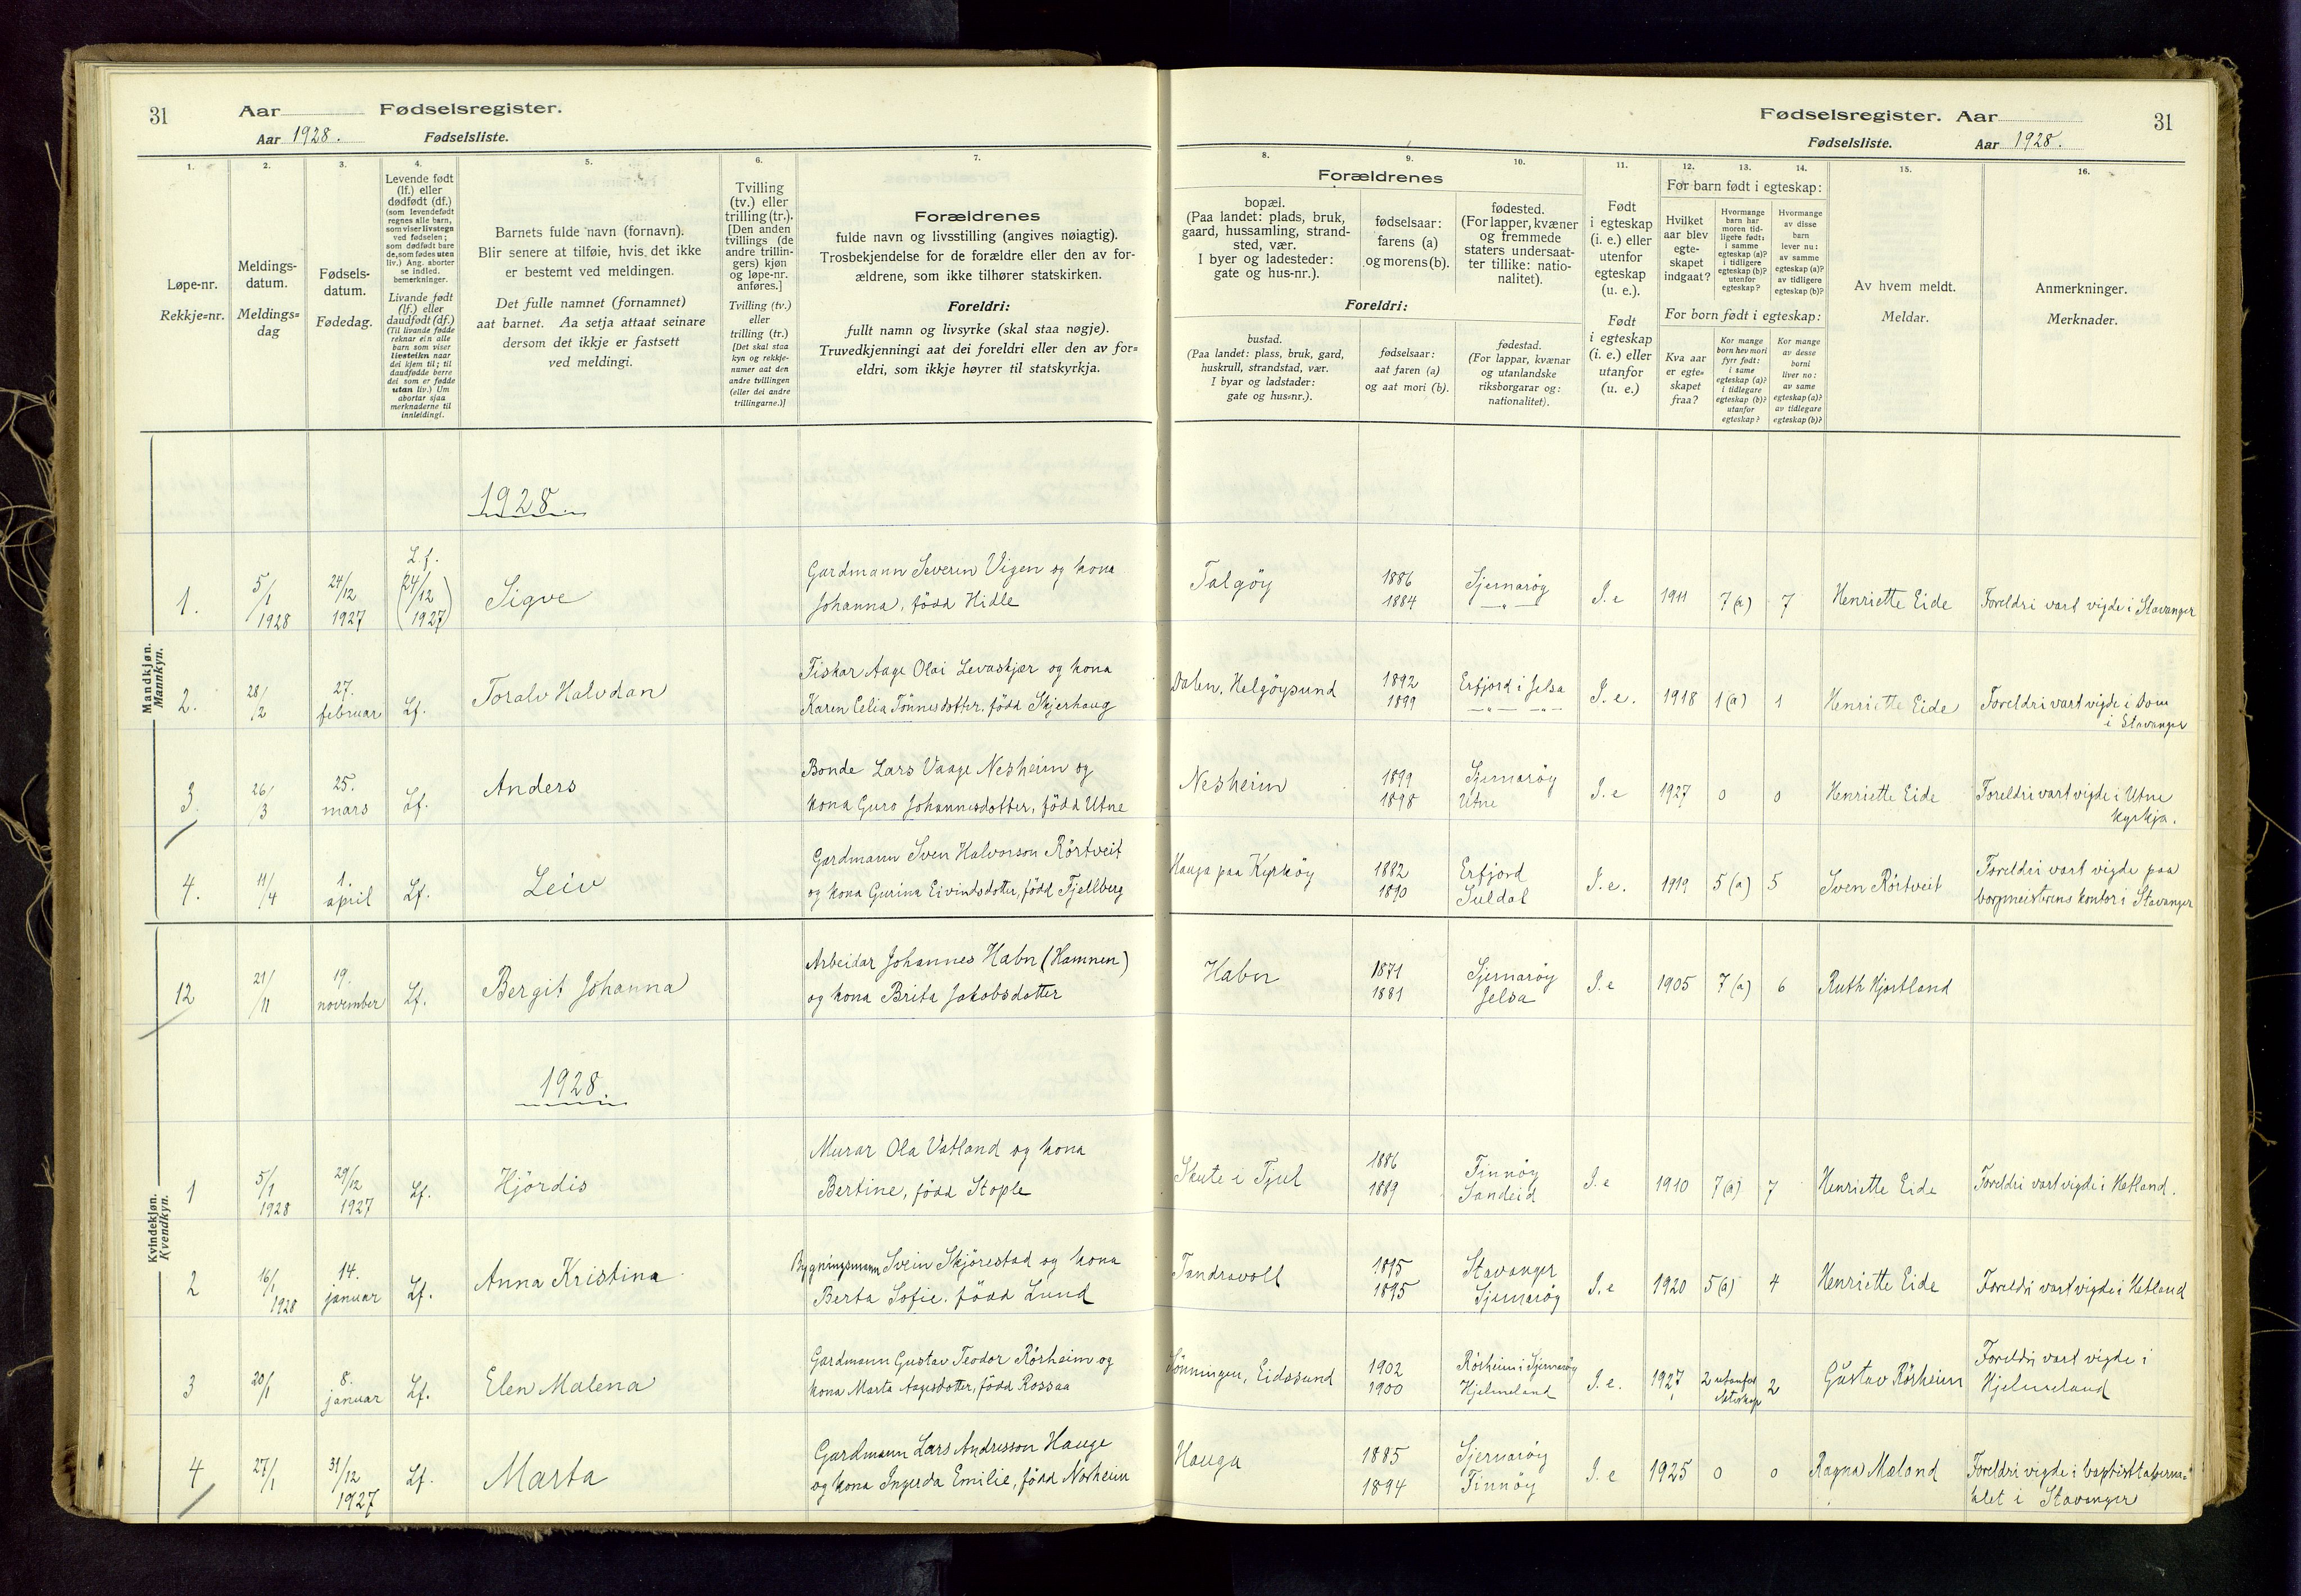 31
Aar Fødselsregister.
Aar 1928. Fødselsliste.
1.
Løpe-nr.
Rekkje=nr.
2.
Meldings-
datum.
Meldings=
dag
3.
Fødsels-
datum.
Fødedag.
4.
Levende født
(lf.) eller
dødfødt (df.)
(som levendefødt
regnes alle barn,
som viser livstegn
ved fødselen;
som dødfødt bare
de, som fødes uten
liv.) Ang. aborter
se indled.
bemerkninger.
Livande født
(lf.) eller
daudfødt (df.)
(Til livande fødde
reknar ein alle
barn som viser
livsteikn naar
dei kjem til; til
daudfødde berre
dei som er fødde
utan liv.) Um
abortar sjaa
merknaderne til
innleidingi.
5.
Barnets fulde navn (fornavn).
Blir senere at tilføie, hvis det ikke
er bestemt ved meldingen.
Det fulle namnet (fornamnet)
aat barnet. Aa setja attaat seinare
dersom det ikkje er fastsett
ved meldingi.
6.
Tvilling
(tv.) eller
trilling (tr.).
[Den anden
tvillings (de
andre trillin-
gers) kjøn
og løpe-nr.
anføres.]
Tvilling (tv.)
eller
trilling (tr.)
[Det skal staa
kyn og rekkje-
numer aat den
andre tvillingen
(eller dei andre
trillingarne.)]
7.
Forældrenes
fulde navn og livsstilling (angives nøiagtig).
Trosbekjendelse for de forældre eller den av for-
ældrene, som ikke tilhører statskirken.
Foreldri:
fullt namn og livsyrke (skal staa nøgje).
Truvedkjenningi aat dei foreldri eller den av for=
eldri, som ikkje høyrer til statskyrkja.
Fødselsregister. Aar
31
Fødselsliste. Aar 1928.
8.
9.
10.
Forældrenes
bopæl.
(Paa landet: plads, bruk,
gaard, hussamling, strand-
sted, vær.
I byer og ladesteder:
gate og hus-nr.).
fødselsaar:
farens (a)
og morens (b).
fødested.
(For lapper, kvæner
og fremmede
staters undersaat-
ter tillike: natio-
nalitet).
Foreldri:
bustad.
(Paa landet: plass, bruk, gard,
huskrull, strandstad, vær.
I byar og ladstader:
gate og hus=nr.).
fødselsaar:
aat faren (a)
og aat mori (b).
fødestad.
(For lappar, kvænar
og utanlandske
riksborgarar og:
nationalitet).
11.
Født
i egteskap
(i. e.) eller
utenfor
egteskap
(u. e.).
Født
i egteskap
(i. e.) eller
utanfor
(u. e.)
12.
13.
14.
For barn født i egteskap:
Hvilket
aar blev
egte-
skapet
indgaat?
Hvormange
barn har
moren tid-
ligere født:
i samme
egteskap (a)?
i tidligere
egteskap (b)?
utenfor
egteskap?
Hvormange
av disse
barn
lever nu:
av samme
egteskap (a)?
av tidligere
egteskap (b)?
For born født i egteskap:
Kva aar
er egte=
skapet
fraa?
Kor mange
born hev mori
fyrr født:
i same
egteskap (a)?
i tidlegare
egteskap (b)?
utanfor
egteskap?
Kor mange
av desse
borni
liver no:
av same
egteskap (a)?
av tidlegare
egteskap (b)?
15.
Av hvem meldt.
Meldar.
16.
Anmerkninger.
Merknader.
Mandkjøn.
Mannkyn.
1928.
1. 5/1 1928 24/12 1927 L.f. (24/12 1927) Sigve Gardmann Severin Vigen og kona
Johanna, född Hidle Talgöy 1886 Sjernaröy
1884 — " — I. e 1911 7 (a) 7 Henriette Eide Foreldri vart vigde i Stavanger
2. 28/2 27. februar Lf. Toralv Halvdan Fiskar Aage Olai Levaskjær og kona
Karen Celia Tönnesdotter, född Skjerhaug Dalen, Helgöysund 1892 Erfjord i Jelsa
1899 — " — " — I. e. 1918 1 (a) 1 Henriette Eide Foreldri vart vigde i Dom
i Stavanger
3. 26/3 25. mars Lf. Anders Bonde Lars Vaage Nesheim og
kona Guro Johannesdotter, född Utne Nesheim 1899 Sjernaröy
1898 Utne I. e 1927 0 0 Henriette Eide Foreldri vart vigde i Utne
kyrkja.
4. 11/4 1. april Lf. Leiv Gardmann Sven Halvorson Rörtveit
og kona Gurina Eivindsdotter, född Fjellberg Hauga paa Kyrköy 1882 Erfjord
1890 Suldal I. e. 1919 5 (a) 5 Sven Rörtveit Foreldri vart vigde paa
borgmeisterens kontor i Stavanger
12 21/11 19. november Lf. Bergit Johanna Arbeidar Johannes Habn (Hamnen)
og kona Brita Jakobsdotter Habn 1871 Sjernaröy
1881 Jelsa I. e 1905 7 (a) 6 Ruth Hjortland
Kvindekjøn.
Kvendkyn.
1928.
1 5/1 1928 29/12 1927 Lf. Hjördis Murar Ola Vatland og kona
Bertine, född Stople Skute i Fjul 1886 Finnöy
1889 Sandeid I. e 1910 7 (a) 7 Henriette Eide Foreldri vart vigde i Hetland.
2 16/1 1928 14. januar Lf. Anna Kristina Bygningsmann Svein Skjörestad og kona
Berta Sofie, född Lund Tandravoll 1895 Stavanger
1895 Sjernaröy I. e 1920 5 (a) 4 Henriette Eide Foreldri vart vigde i Hetland
3 20/1 8. januar Lf. Elen Malena Gardmann Gustav Teodor Rörheim og
kona Marta Aagesdotter, född Rossaa Sönningen, Eidssund 1902 Rörheim i Sjernaröy
1900 Hjelmeland I. e. 1927 2 utanfor ekteskap 2 Gustav Rörheim Foreldri vart vigde i
Hjelmeland
4 27/1 31/12 1927 Lf. Marta Gardmann Lars Andresson Hauge
og kona Ingerda Emilie, född Norheim Hauga 1885 Sjernaröy
1894 Finnöy I. e 1925 0 0 Ragna Mæland Foreldri vigde i baptisttaberna=
klet i Stavanger